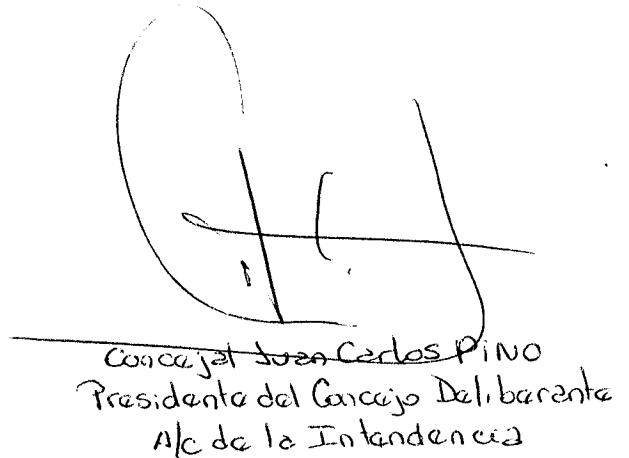 Concejal Juan Carlos PINO
Presidente del Concejo Deliberante
A/c de la Intendencia